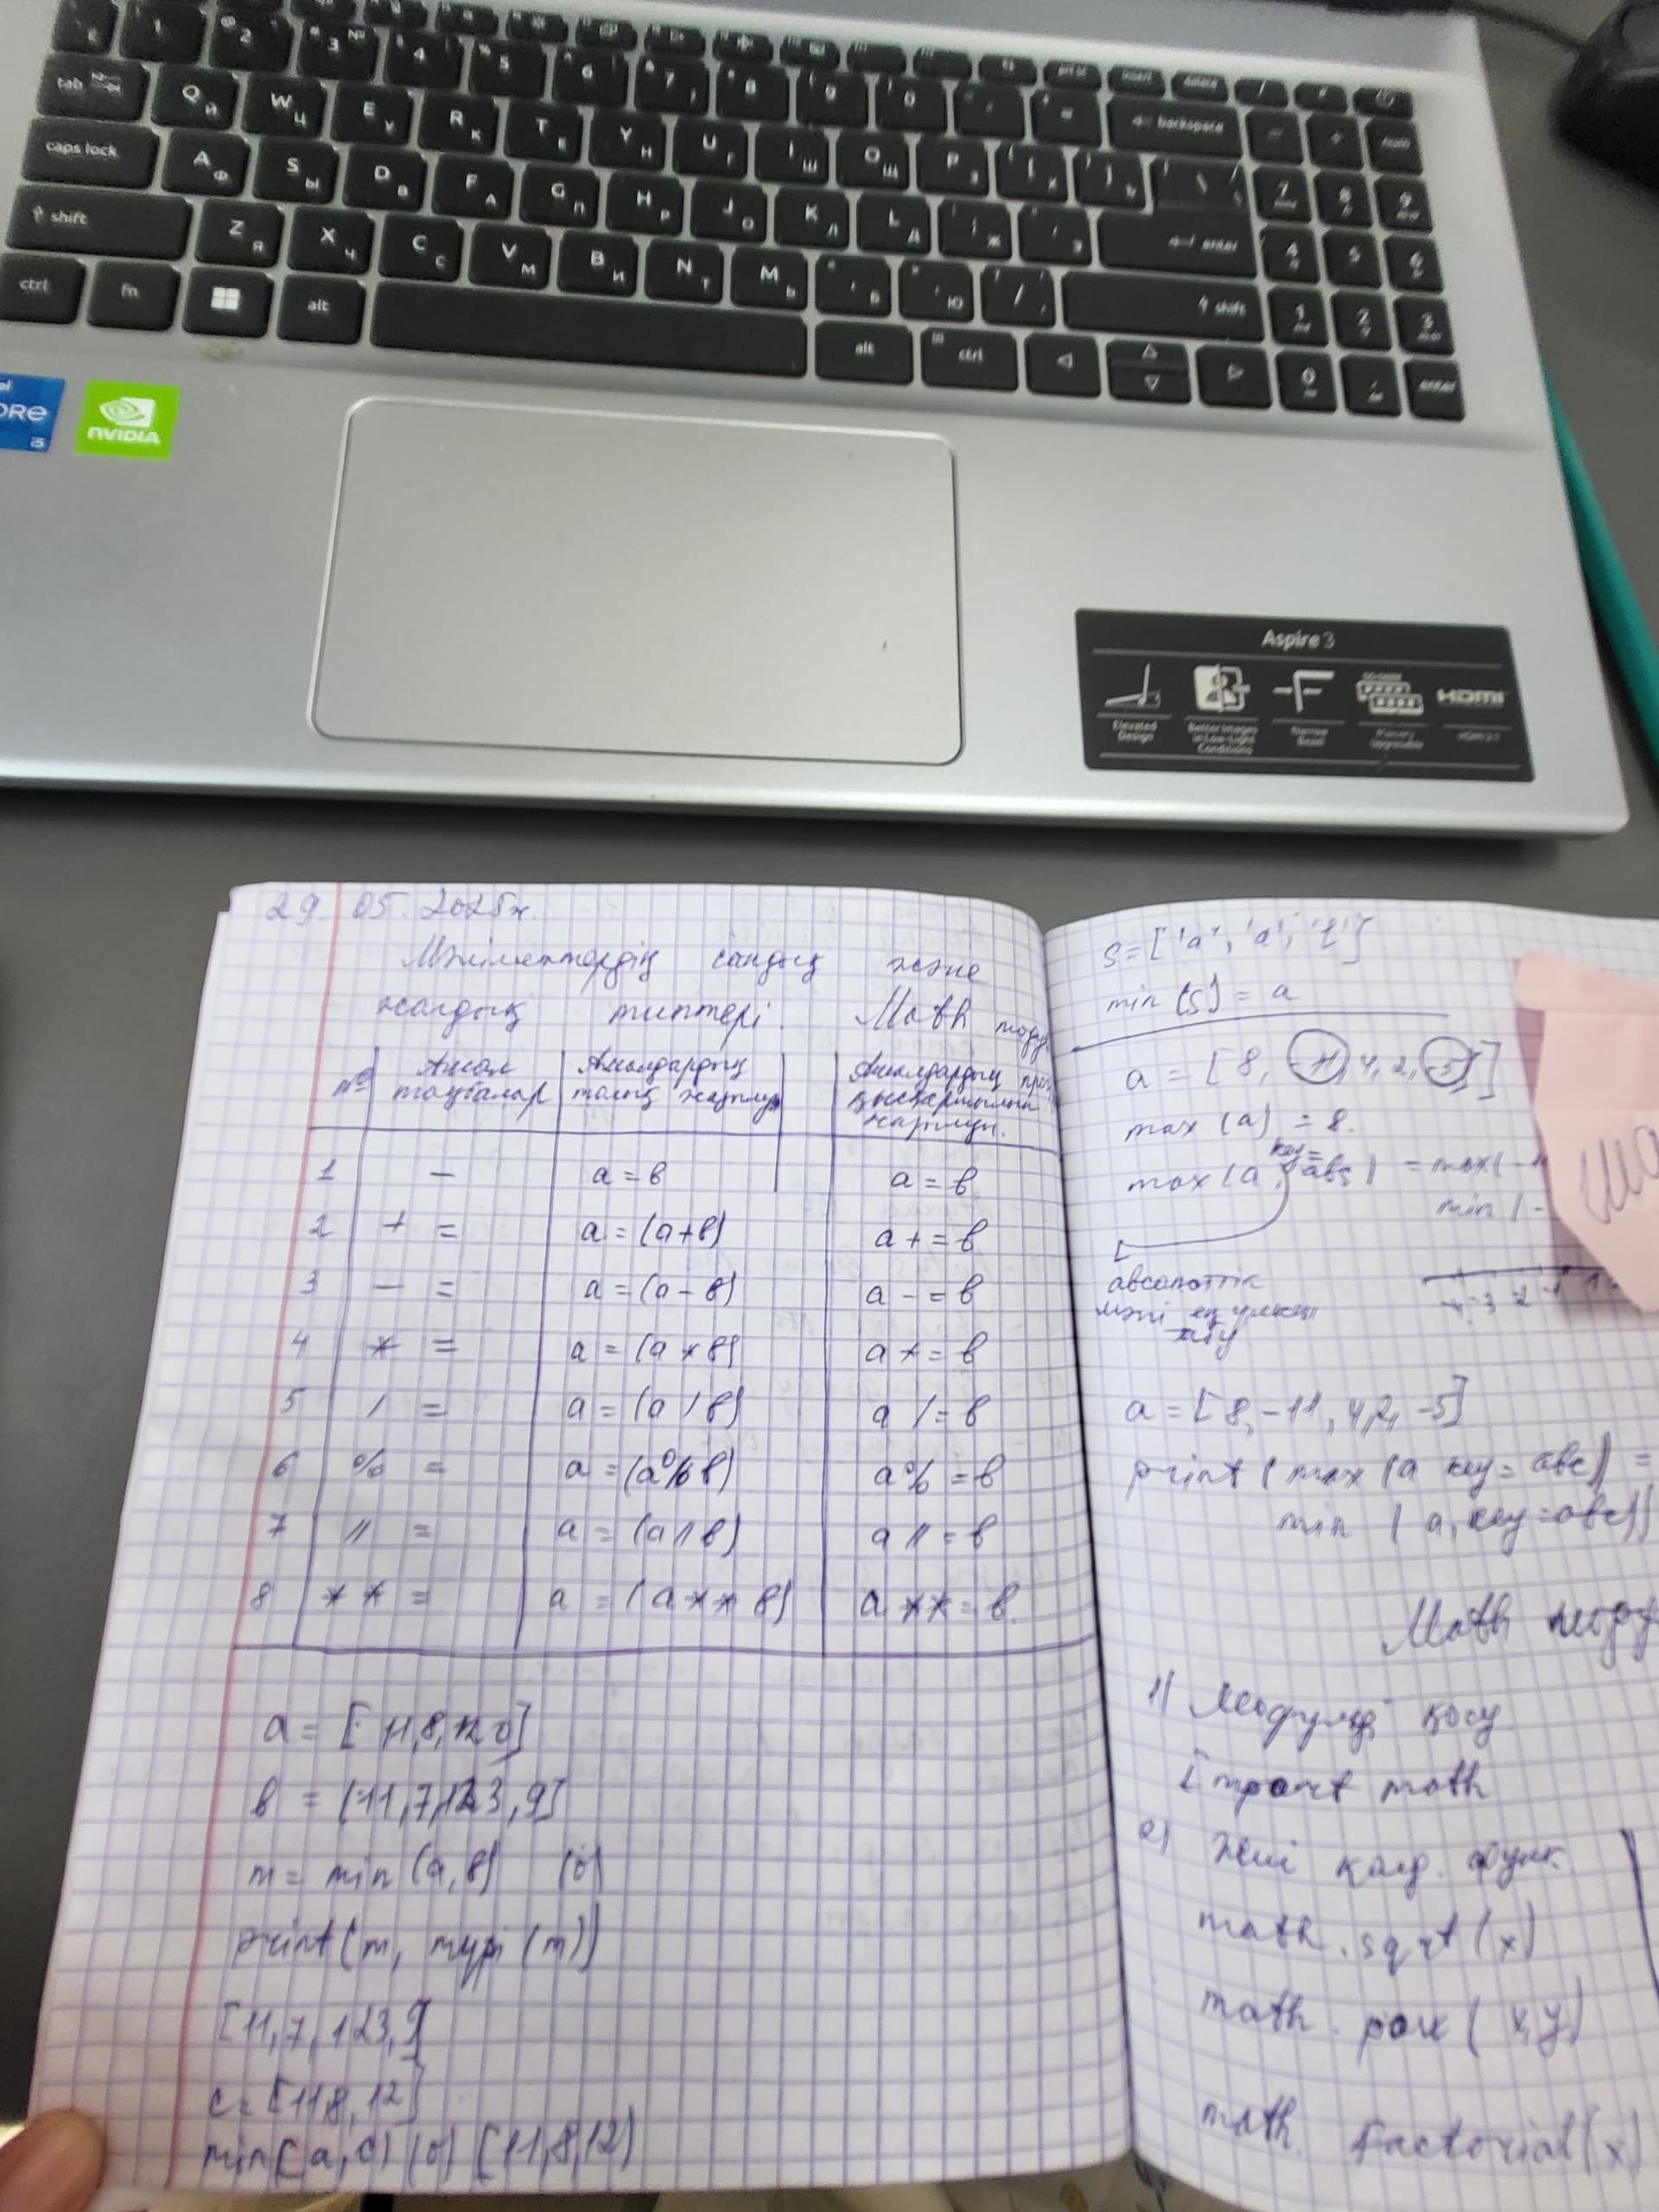 tab
Q Й W Ц E У R К T Е Y Н U Г I Ш O Щ P З
backspace
caps lock
A Ф S Ы D В F А G П H Р J О K Л L Д
enter
shift
Z Я X Ч C С V М B И N Т M Ь
shift
ctrl fn alt alt ctrl
enter
CORE
i5
NVIDIA
Aspire 3
Elevated Design
Better Images in Low-Light Conditions
Narrow Bezel
Memory Upgradable
HDMI
29. 05. 2025ж.
Мәліметтердің сандық және
жолдық типтері. Math моду
№ Амал таңбалар Амалдардың толық жазылуы Амалдардың қысқартылған жазылуы.
1 – a = в a = в
2 + = a = (a+в) a + = в
3 – = a = (a – в) a – = в
4 * = a = (a * в) a * = в
5 / = a = (a / в) a / = в
6 % = a = (a % в) a % = в
7 // = a = (a // в) a // = в
8 * * = a = (a * * в) a ** = в.
a = [11,8,12 0]
в = [11,7,123,9]
m = min (a, в) (0)
print(m, түрі (m))
[11,7,123,9]
c = [11,8,12]
min[a, c) (0) [11,8,12)
S = ['a', 'd',
min (S) = a
a = [8, -11, 4, 2, -5]
max (a) = 8.
max (a, key= abs) = max(-11
min (-
абсолюттік
мәні ең үлкенін
табу
-3 -2 -1 1
a = [8, -11, 4,2, -5]
print (max (a key = abc)) =
min (a, key = abc))
Math моду
1) Модульді қосу
import math
2) Жиі қолд. функ.
math. sqrt (x)
math. pow (x,y)
math. factorial (x)